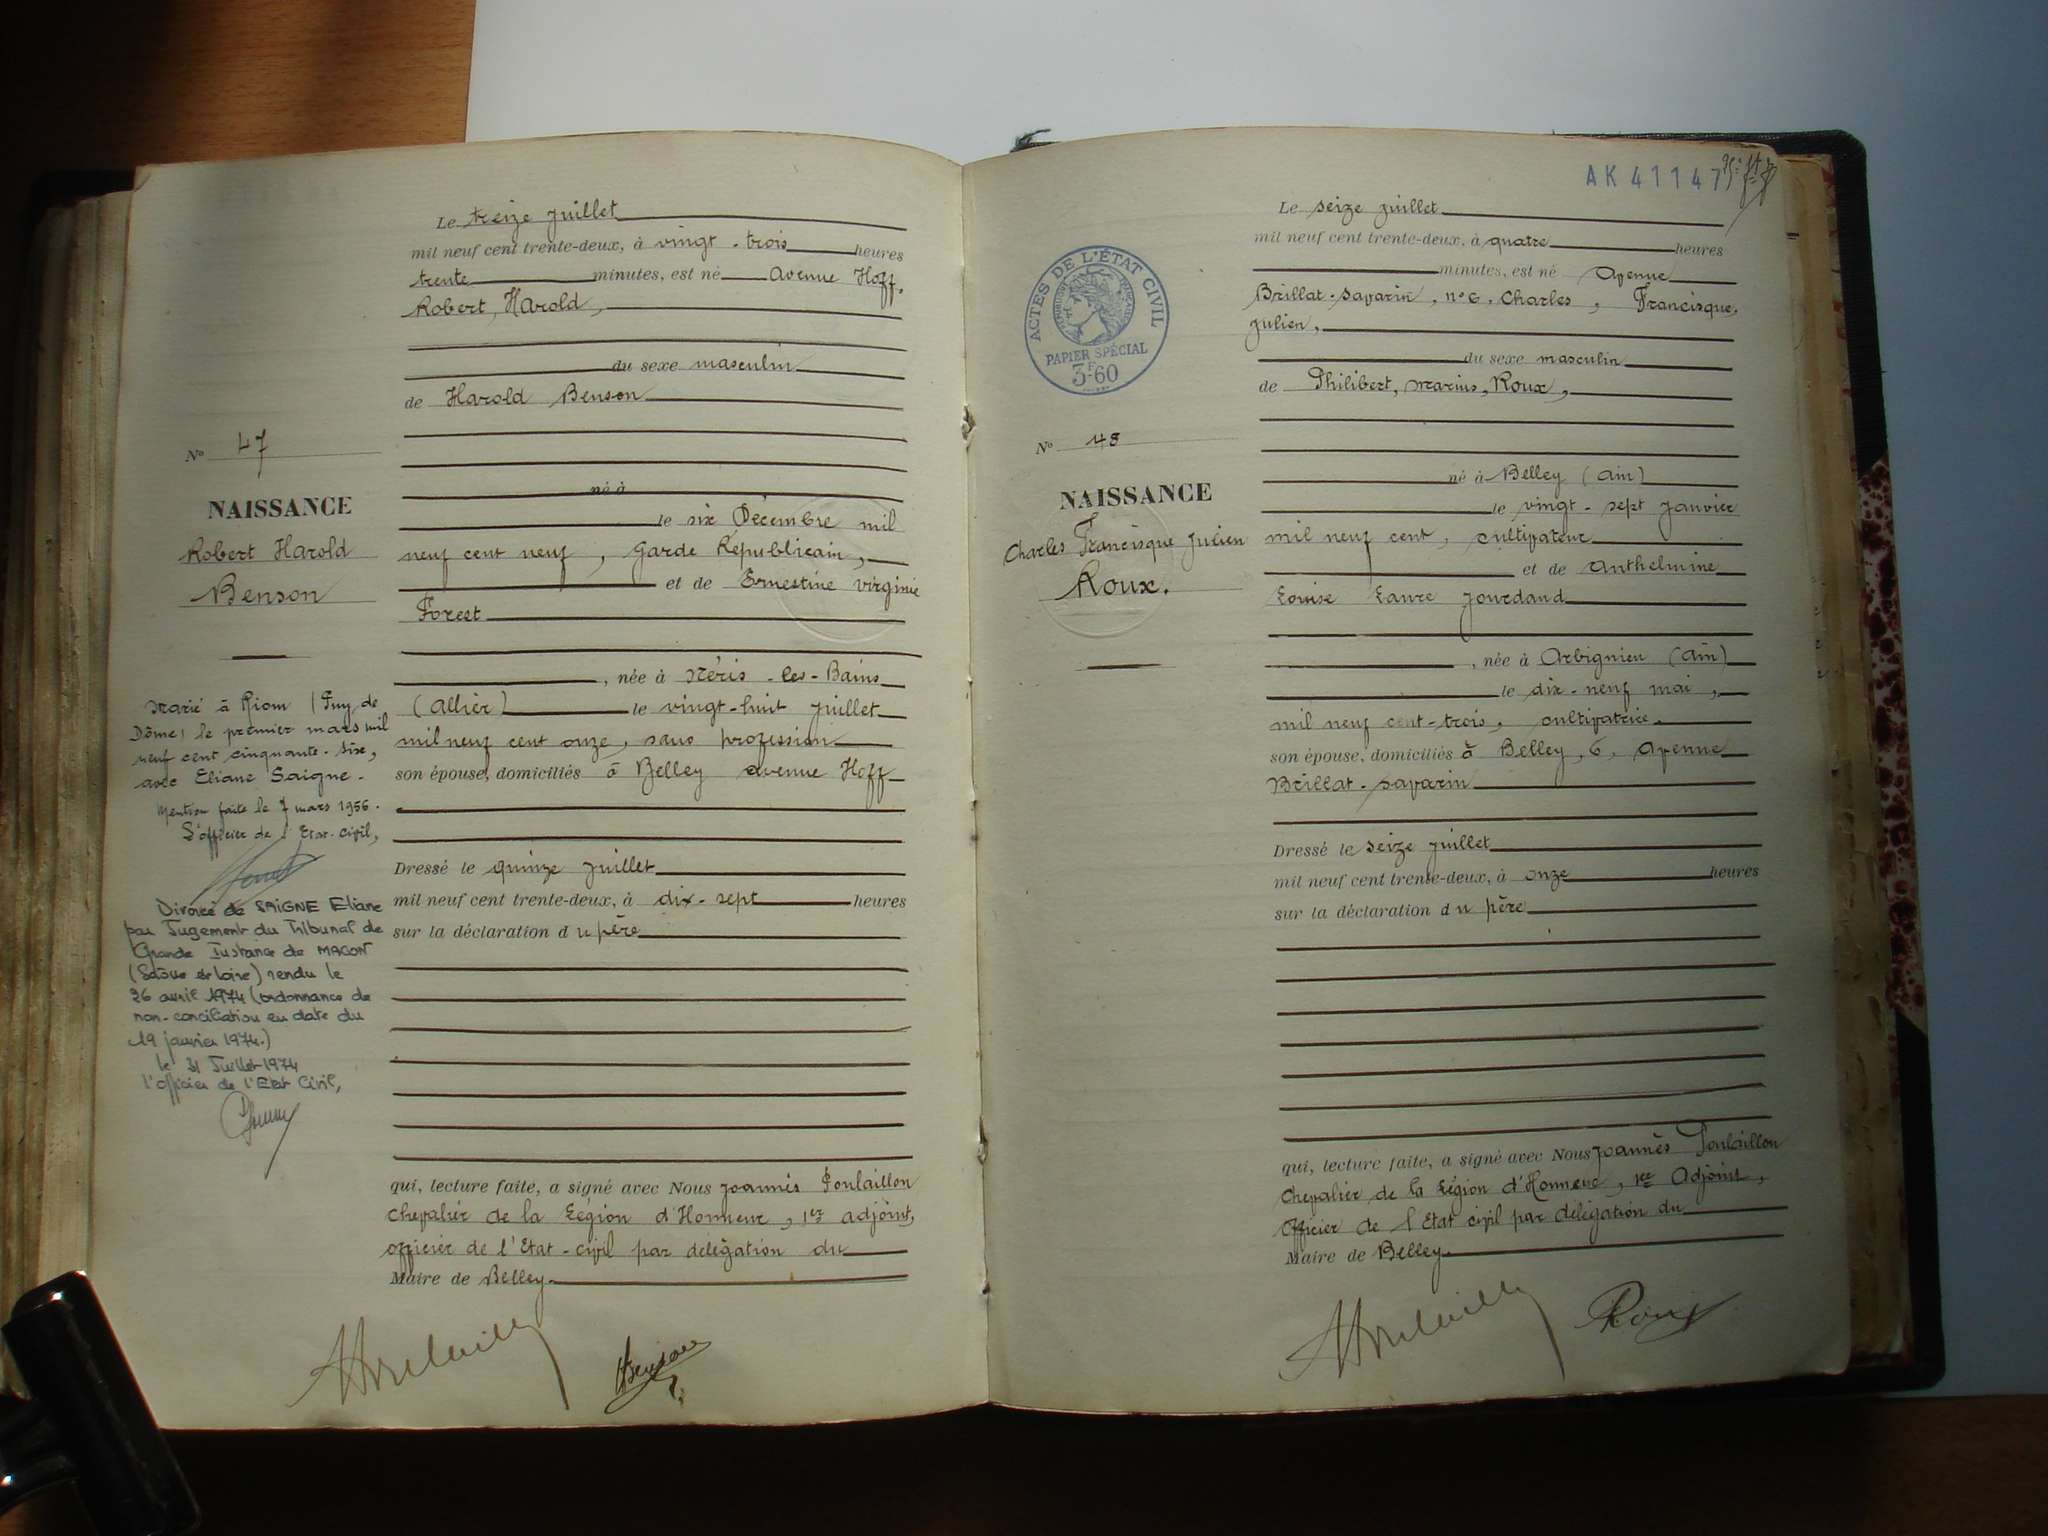 Le treize juillet
mil neuf cent trente-deux, à vingt-trois heures
trente minutes, est né Avenue Hoff,
Robert, Harold,
du sexe masculin
de Harold Benson
né à
le six Décembre mil
neuf cent neuf, Garde Républicain,
et de Ernestine Virginie
Forest
, née à Néris-les-Bains
(Allier) le vingt-huit juillet
mil neuf cent onze, sans profession
son épouse, domiciliés à Belley avenue Hoff
Dressé le quinze juillet
mil neuf cent trente-deux, à dix-sept heures
sur la déclaration du père
qui, lecture faite, a signé avec Nous Joannès Poulaillon
Chevalier de la Légion d'Honneur, 1er adjoint,
officier de l'Etat-civil par délégation du
Maire de Belley.
Benson
No 47
NAISSANCE
Robert Harold
Benson
Marié à Riom (Puy de
Dôme) le premier mars mil
neuf cent cinquante-six,
avec Eliane Saigne.
Mention faite le 7 mars 1956.
L'officier de l'Etat-civil,
Divorcé de SAIGNE Eliane
par Jugement du Tribunal de
Grande Instance de MACON
(Saône et Loire) rendu le
26 avril 1974 (ordonnance de
non-conciliation en date du
19 janvier 1974.)
le 31 Juillet 1974
l'officier de l'Etat Civil,
AK 41147
ACTES DE L'ÉTAT CIVIL
PAPIER SPÉCIAL
3F60
Le seize juillet
mil neuf cent trente-deux, à quatre heures
minutes, est né Avenue
Brillat-Savarin, no 6, Charles, Francisque,
Julien,
du sexe masculin
de Philibert, Marius, Roux,
né à Belley (Ain)
le vingt-sept janvier
mil neuf cent, cultivateur
et de Anthelmine
Louise Laure Jourdand
, née à Arbignieu (Ain)
le dix-neuf mai,
mil neuf cent-trois, cultivatrice.
son épouse, domiciliés à Belley, 6, Avenue
Brillat-Savarin
Dressé le seize juillet
mil neuf cent trente-deux, à onze heures
sur la déclaration du père
qui, lecture faite, a signé avec Nous Joannès Poulaillon
Chevalier de la Légion d'Honneur, 1er Adjoint,
Officier de l'Etat civil par délégation du
Maire de Belley.
Roux
No 48
NAISSANCE
Charles Francisque Julien
Roux.